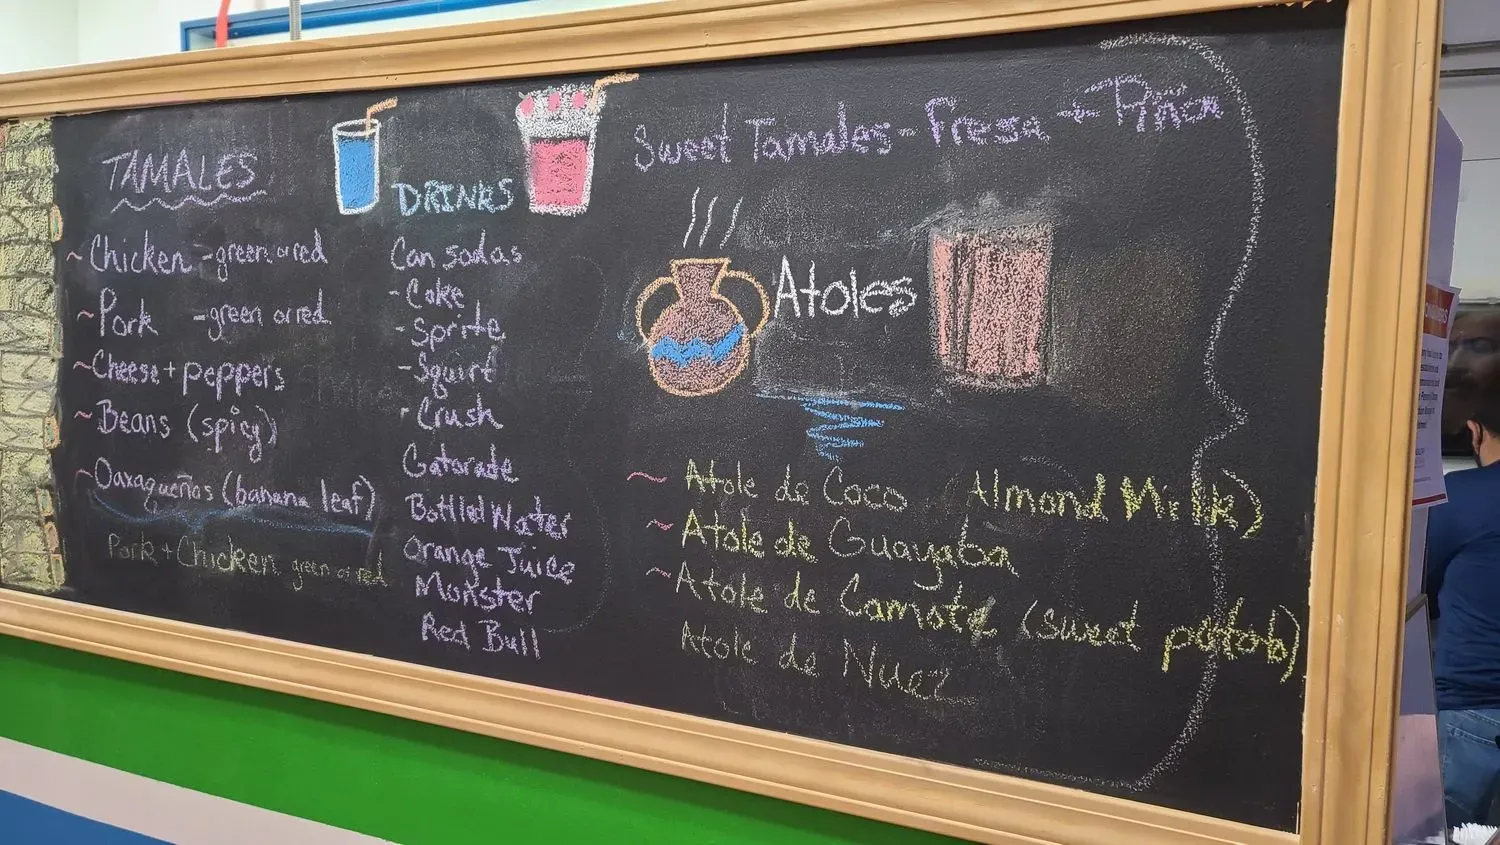 TAMALES
~ Chicken - green or red
~ Pork - green or red
~ Cheese + peppers
~ Beans (spicy)
~ Oaxaqueñas (banana leaf)
Pork + Chicken green or red
DRINKS
Can sodas
- Coke
- Sprite
- Squirt
- Crush
Gatorade
Bottled Water
Orange Juice
Monster
Red Bull
Sweet Tamales - Fresa + Pina
Atoles
~ Atole de Coco Almond Milk)
~ Atole de Guayaba
~ Atole de Camote (sweet potato)
Atole de Nuez